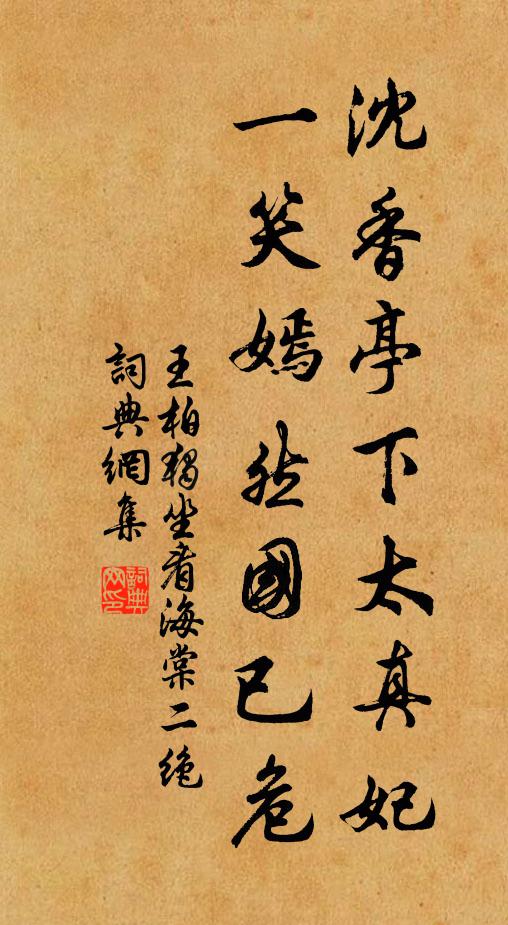 沈香亭下太真妃
一笑嫣然國已危
王柏獨坐看海棠二絶
詞典網集
詞典網印